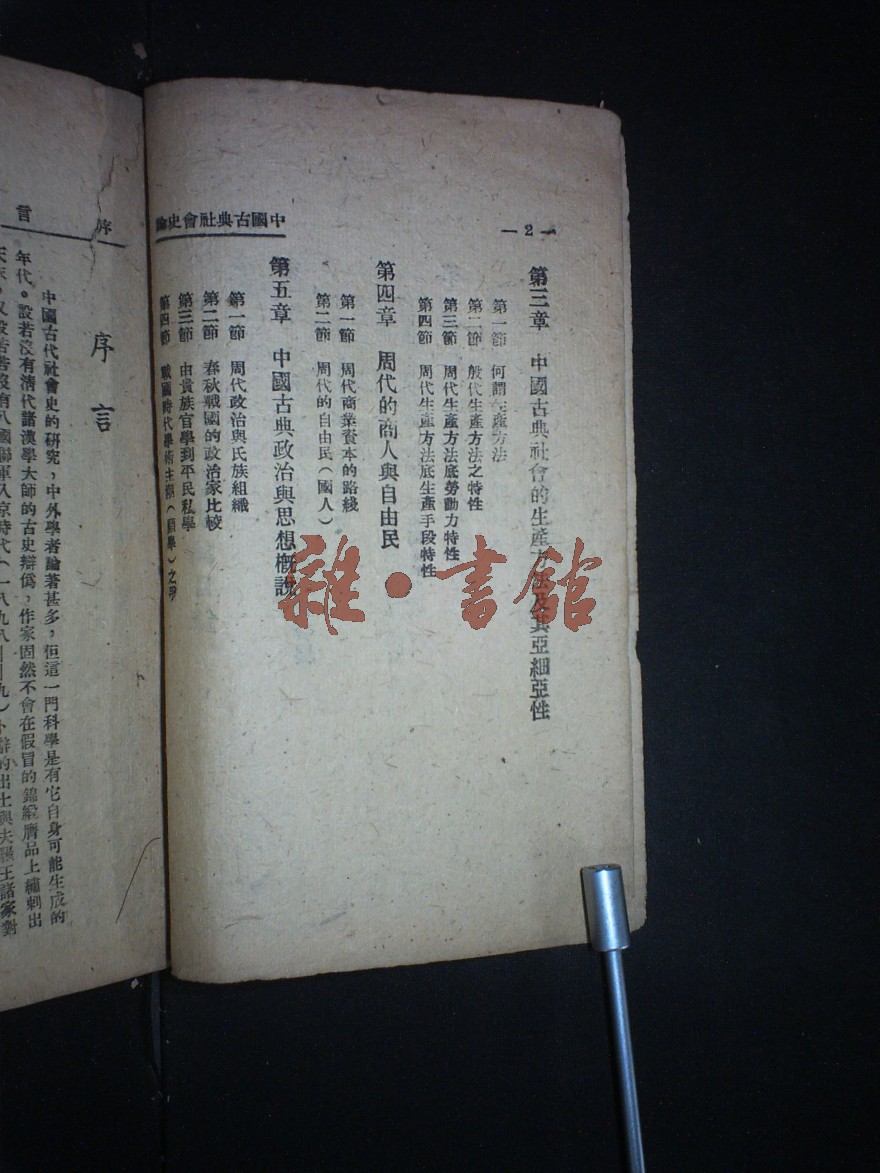 — 2 —
中國古典社會史論
第三章 中國古典社會的生產方法及其亞細亞性
第一節 何謂生產方法
第二節 殷代生產方法之特性
第三節 周代生產方法底勞動力特性
第四節 周代生產方法底生產手段特性
第四章 周代的商人與自由民
第一節 周代商業資本的路綫
第二節 周代的自由民(國人)
第五章 中國古典政治與思想概說
第一節 周代政治與氏族組織
第二節 春秋戰國的政治家比較
第三節 由貴族官學到平民私學
第四節 戰國時代學術主潮(顯學)之爭
序言
序言
中國古代社會史的研究,中外學者論著甚多,但這一門科學是有它自身可能生成的
年代。設若沒有清代諸漢學大師的古史辯僞,作家固然不會在假冒的錦緞贋品上繡刺出
又設若沒有八國聯軍入京時代(一八九八——九)卜辭的出土與夫羅王諸家對
雜·書館